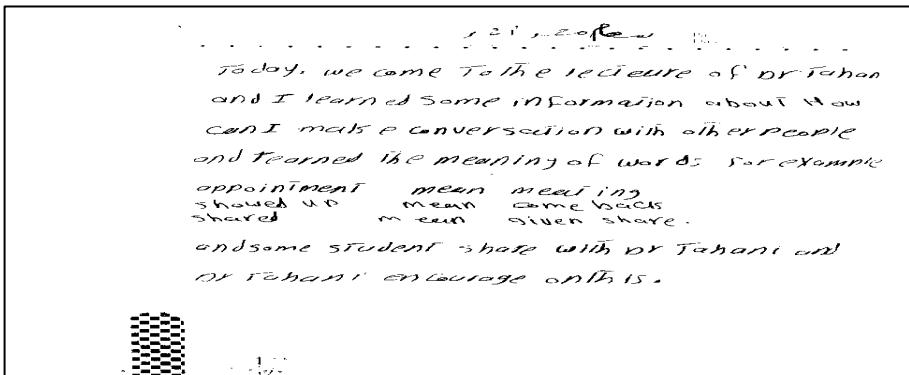 Today, we come To the lecieure of Dr Tahan
and I learned some information about How
can I make conversation with other people
and learned the meaning of words for example
appointment mean meeting
showed up mean come back
shared mean given share.
and some student share with Dr Tahani and
Dr Tahani encourage on this.